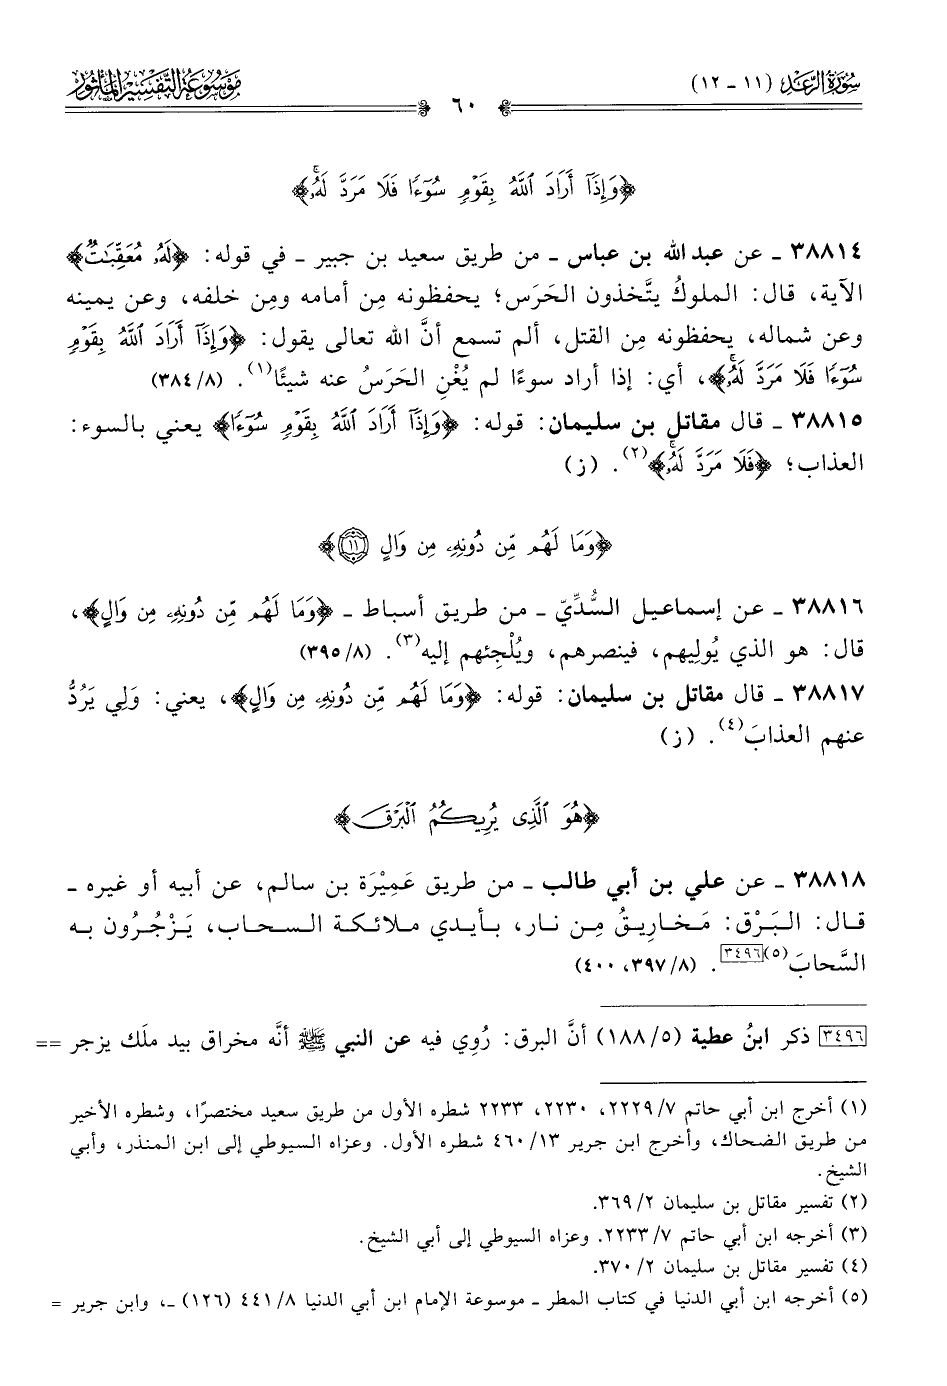 سُورَةُ الرَّعْدِ (١١ - ١٢)
٦٠
مَوْسُوعَةُ التَّفْسِيرِ المَأْثُورِ
﴿وَإِذَآ أَرَادَ ٱللَّهُ بِقَوْمٍ سُوٓءًا فَلَا مَرَدَّ لَهُۥۚ﴾
٣٨٨١٤ ـ عن عبد الله بن عباس ـ من طريق سعيد بن جبير ـ في قوله: ﴿لَهُۥ مُعَقِّبَٰتٌ﴾
الآية، قال: الملوكُ يتَّخذون الحَرَس؛ يحفظونه مِن أمامه ومِن خلفه، وعن يمينه
وعن شماله، يحفظونه مِن القتل، ألم تسمع أنَّ الله تعالى يقول: ﴿وَإِذَآ أَرَادَ ٱللَّهُ بِقَوْمٍ
سُوٓءًا فَلَا مَرَدَّ لَهُۥۚ﴾، أي: إذا أراد سوءًا لم يُغْنِ الحَرَسُ عنه شيئًا(١). (٨/ ٣٨٤)
٣٨٨١٥ ـ قال مقاتل بن سليمان: قوله: ﴿وَإِذَآ أَرَادَ ٱللَّهُ بِقَوْمٍ سُوٓءًا﴾ يعني بالسوء:
العذاب؛ ﴿فَلَا مَرَدَّ لَهُۥۚ﴾(٢). (ز)
﴿وَمَا لَهُم مِّن دُونِهِۦ مِن وَالٍ ١١﴾
٣٨٨١٦ ـ عن إسماعيل السُّدِّيّ ـ من طريق أسباط ـ ﴿وَمَا لَهُم مِّن دُونِهِۦ مِن وَالٍ﴾،
قال: هو الذي يُولِيهم، فينصرهم، ويُلْجِئهم إليه(٣). (٨/ ٣٩٥)
٣٨٨١٧ ـ قال مقاتل بن سليمان: قوله: ﴿وَمَا لَهُم مِّن دُونِهِۦ مِن وَالٍ﴾، يعني: وَلِي يَرُدُّ
عنهم العذابَ(٤). (ز)
﴿هُوَ ٱلَّذِى يُرِيكُمُ ٱلْبَرْقَ﴾
٣٨٨١٨ ـ عن علي بن أبي طالب ـ من طريق عَمِيْرَة بن سالم، عن أبيه أو غيره ـ
قال: البَرْق: مَخارِيقُ مِن نار، بأيدي ملائكة السحاب، يَزْجُرُون به
السَّحابَ(٥)[٣٤٩٦]. (٨/ ٣٩٧، ٤٠٠)
[٣٤٩٦] ذكر ابنُ عطية (٥/ ١٨٨) أنَّ البرق: رُوِي فيه عن النبي ﷺ أنَّه مخراق بيد ملَك يزجر ==
(١) أخرج ابن أبي حاتم ٧/ ٢٢٢٩، ٢٢٣٠، ٢٢٣٣ شطره الأول من طريق سعيد مختصرًا، وشطره الأخير
من طريق الضحاك، وأخرج ابن جرير ١٣/ ٤٦٠ شطره الأول. وعزاه السيوطي إلى ابن المنذر، وأبي
الشيخ.
(٢) تفسير مقاتل بن سليمان ٢/ ٣٦٩.
(٣) أخرجه ابن أبي حاتم ٧/ ٢٢٣٣. وعزاه السيوطي إلى أبي الشيخ.
(٤) تفسير مقاتل بن سليمان ٢/ ٣٧٠.
(٥) أخرجه ابن أبي الدنيا في كتاب المطر ـ موسوعة الإمام ابن أبي الدنيا ٨/ ٤٤١ (١٢٦) ـ، وابن جرير =